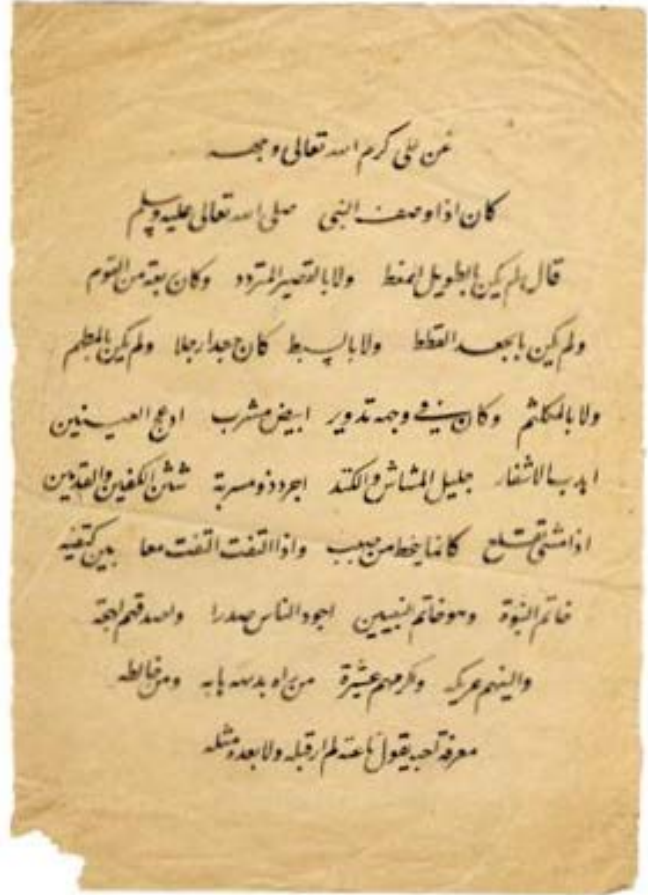 عن علی کرم الله تعالی وجهه
کان اذا وصف النبی صلی الله تعالی علیه وسلم
قال لم یکن بالطویل الممغط ولا بالقصیر المتردد وکان ربعة من القوم
ولم یکن بالجعد القطط ولا بالسبط کان جعدا رجلا ولم یکن بالمطهم
ولا بالمکلثم وکان فی وجهه تدویر ابیض مشرب ادعج العینین
اهدب الاشفار جلیل المشاش والکتد اجرد ذو مسربة شثن الکفین والقدمین
اذا مشی تقلع کانما یخط من صبب واذا التفت التفت معا بین کتفیه
خاتم النبوة وهو خاتم النبیین اجود الناس صدرا واصدقهم لهجة
والینهم عریکه واکرمهم عشیرة من راه بدیهه هابه ومن خالطه
معرفة احبه یقول ناعته لم ار قبله ولا بعده مثله